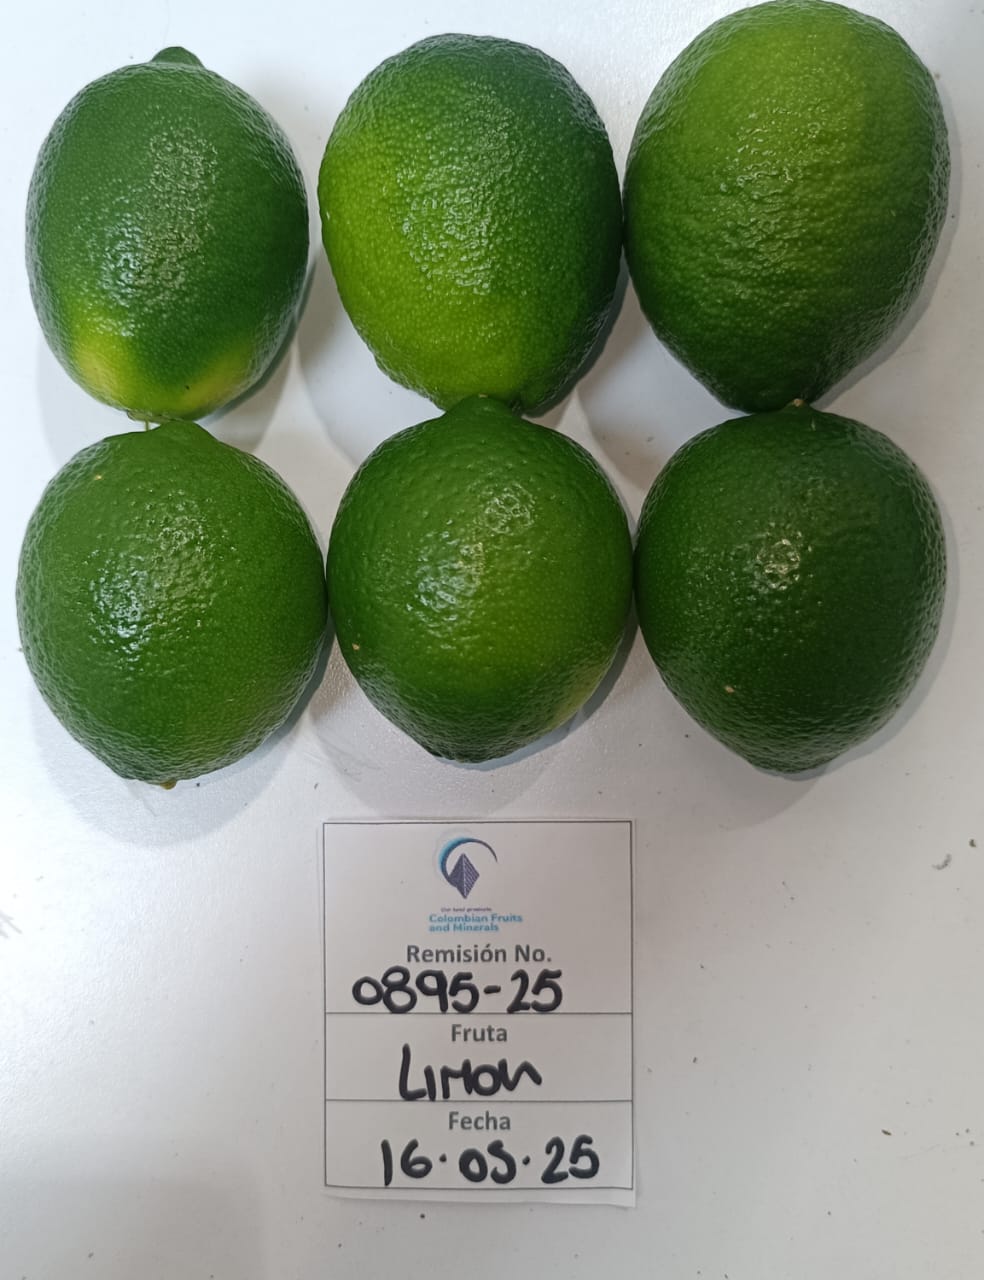 Our best products
Colombian Fruits
and Minerals
Remisión No.
0895-25
Fruta
LIMON
Fecha
16.05.25